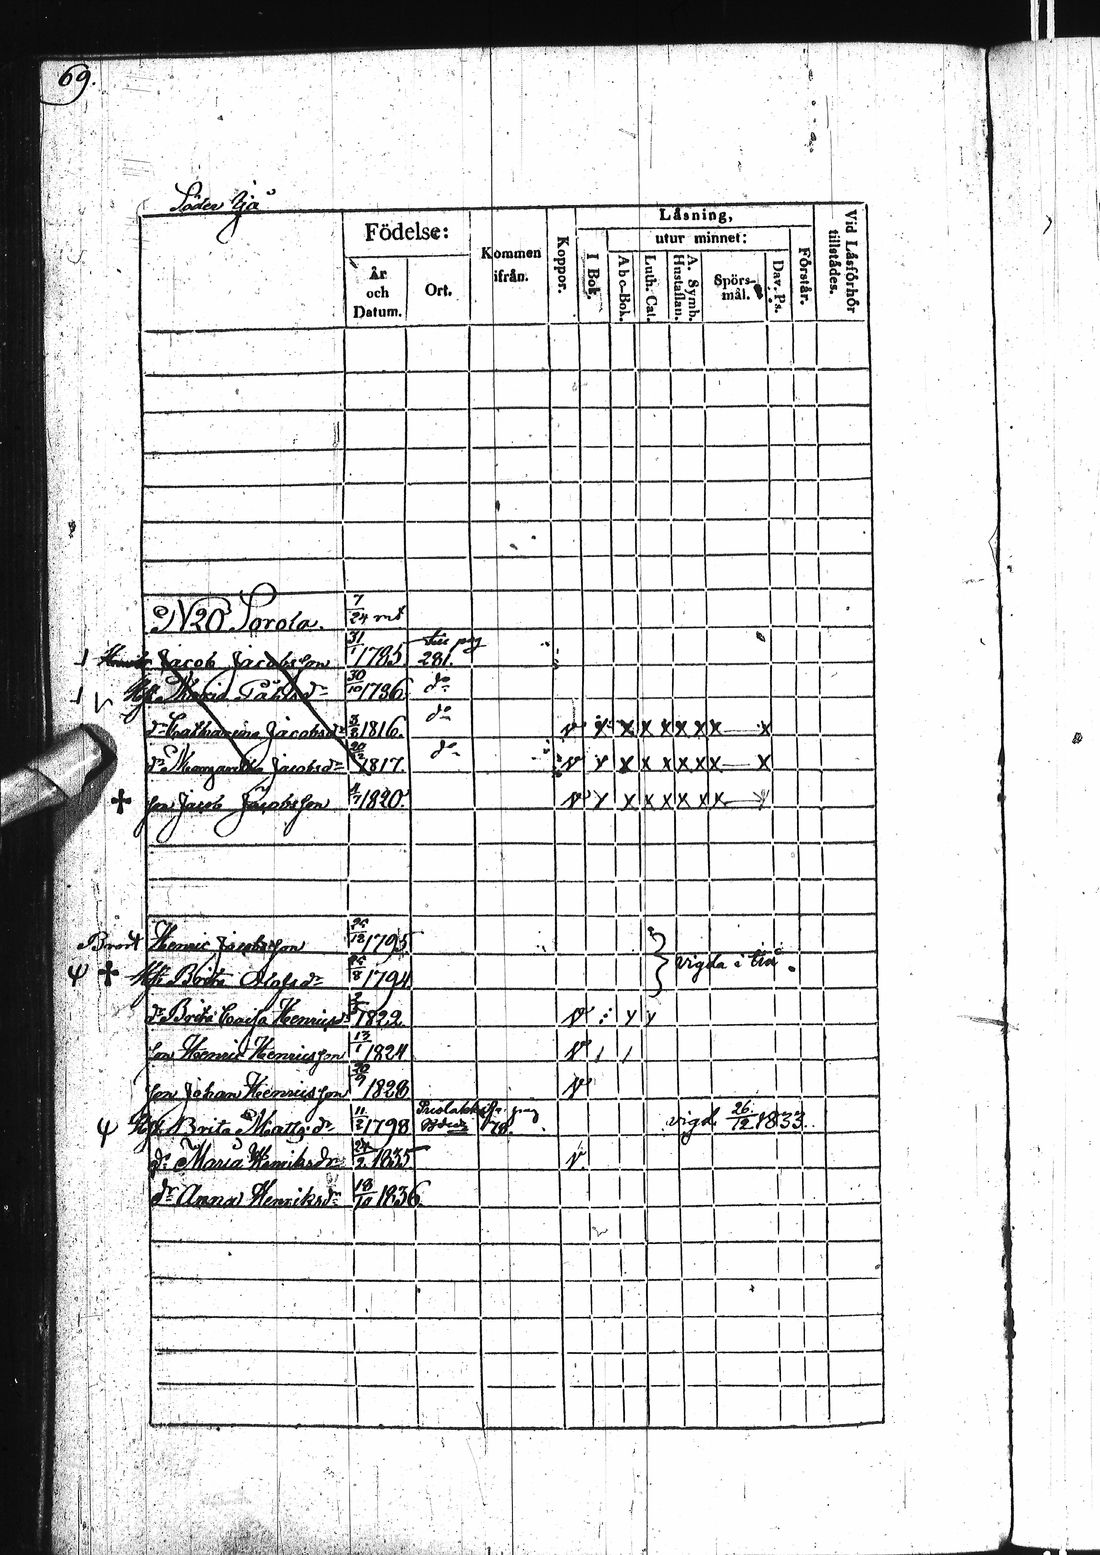 69.
Söder Yjä
Födelse:
År och Datum.
Ort.
Kommen ifrån.
Koppor.
Läsning,
utur minnet:
I Bok.
Abc-Bok.
Luth. Cat.
A. Symb. Hustaflan.
Spörs-mål.
Dav. Ps.
Förstår.
Vid Läsförhör tillstädes.
N20 Sorola. 7/24 mt
Jacob Jacobsson 31/1 1785 till pag 281.
Hu. Maria Påhlsdr 30/10 1786 do
dr Catharina Jacobsdr 3/8 1816. do v x x x x x x x x
dr Margaretha Jacobsdr 20/2 1817. do v x x x x x x x x
son Jacob Jacobsson 4/7 1820. v x x x x x x x
Brod. Henric Jacobsson 25/12 1795
Hu. Brita Olofsdr 25/8 1794 vigda i
dr Brita Caisa Henricsdr 1822 v
son Henric Henricsson 13/1 1824 v / /
son Johan Henricsson 30/9 1828 v
Hu. Brita Mattsdr 11/2 1798 pag 78. vigd 26/12 1833.
dr Maria Henriksdr 24/2 1835 v
dr Anna Henriksdr 18/10 1836.